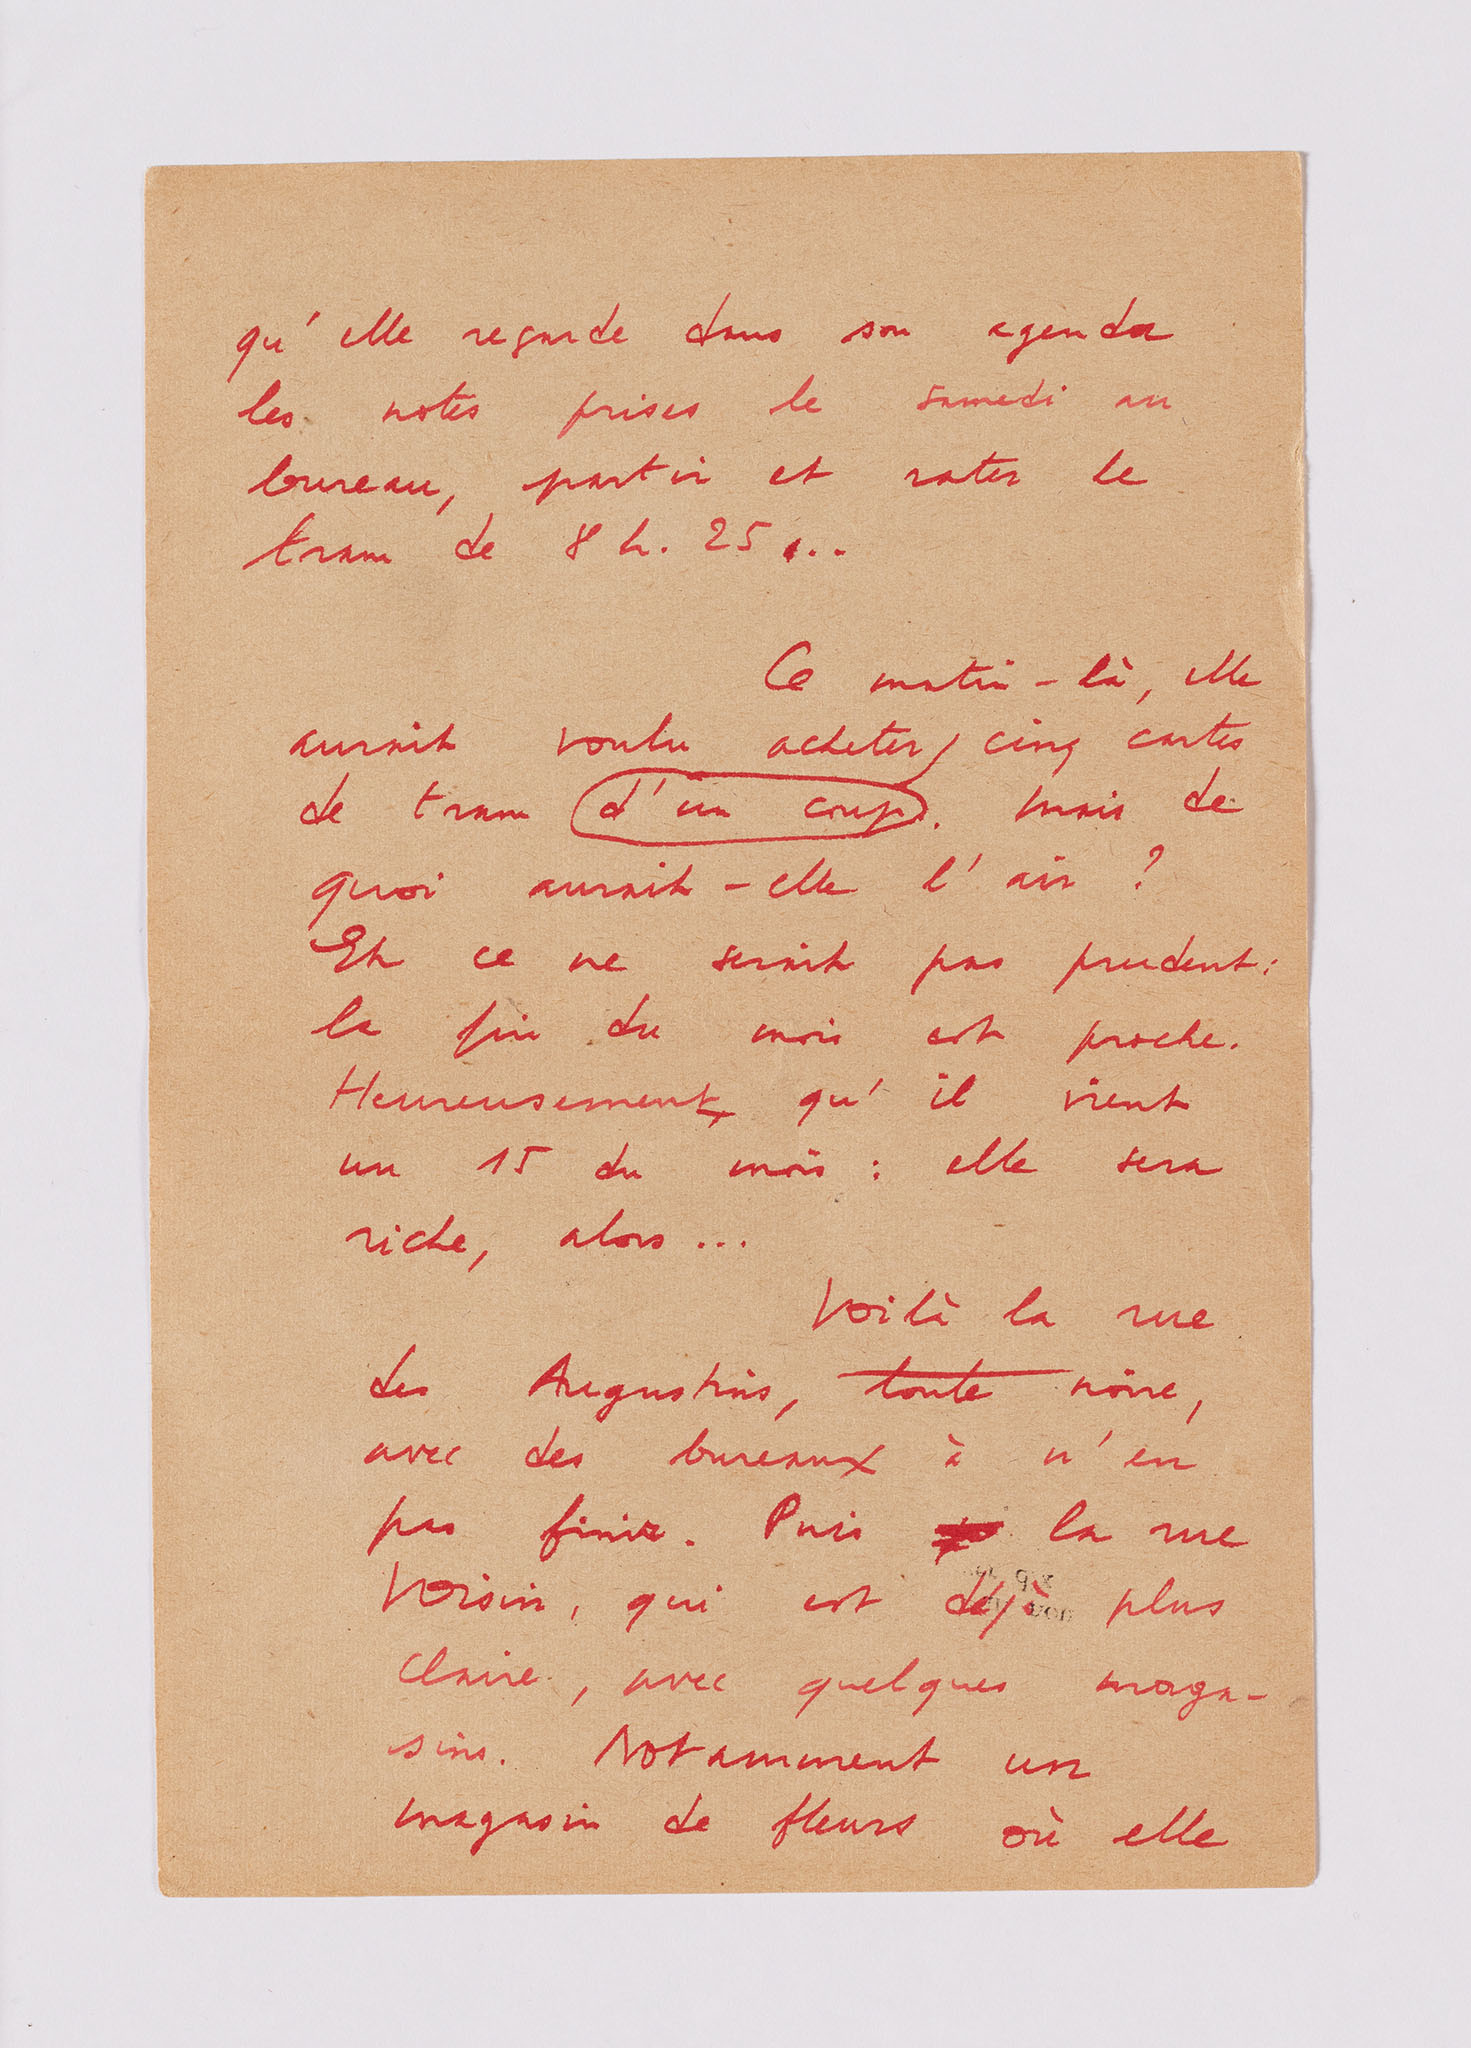 qu'elle regarde dans son agenda
les notes prises le samedi au
bureau, partir et rater le
tram de 8 h. 25...
Ce matin-là, elle
aurait voulu acheter cinq cartes
de tram d'un coup. Mais de
quoi aurait-elle l'air ?
Et ce ne serait pas prudent :
la fin du mois est proche.
Heureusement, qu'il vient
un 15 du mois : elle sera
riche, alors...
Voilà la rue
des Augustins, toute noire,
avec des bureaux à n'en
pas finir. Puis la rue
Voisin, qui est déjà plus
claire, avec quelques maga-
sins. Notamment un
magasin de fleurs où elle